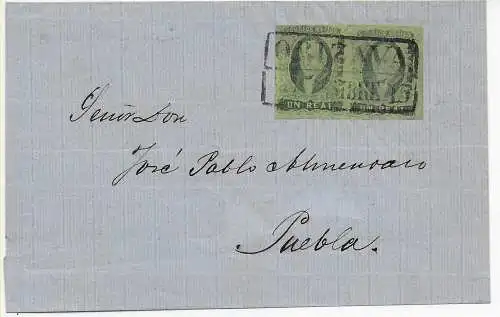 UN REAL UN REAL
Señor Don
José Pablo Almendaro
Puebla.